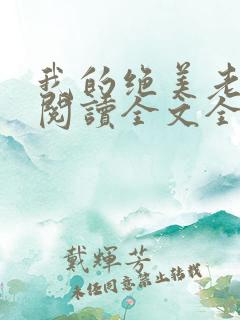 我的绝美老
阅讀全文全
戴輝芳
未经同意禁止转载